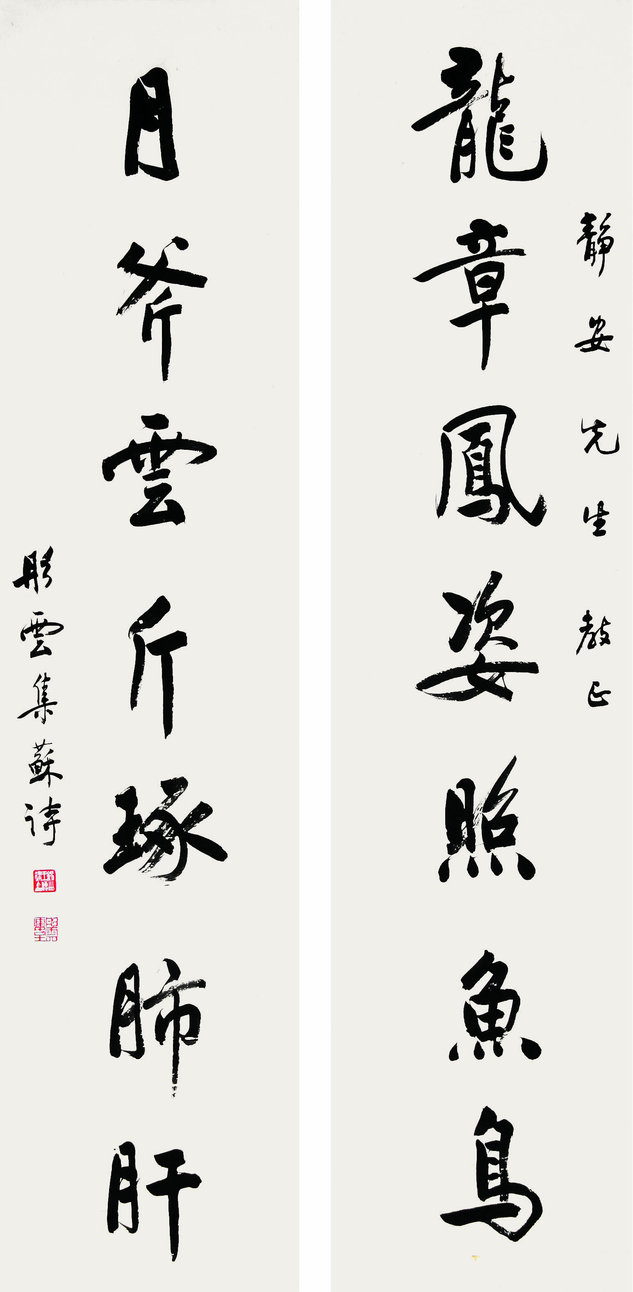 靜安先生教正
龍章鳳姿照魚鳥
月斧雲斤琢肺肝
彤雲集蘇詩